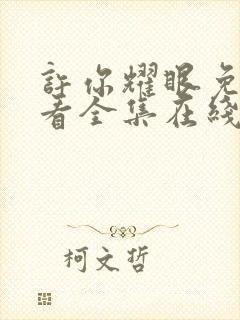 許你耀眼免
看全集在綫
柯文哲